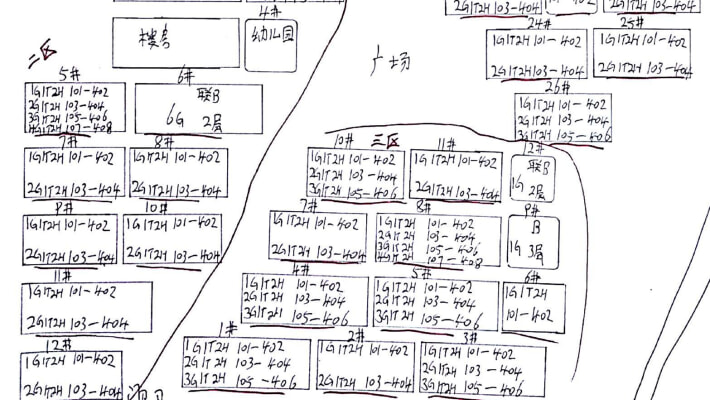 2G1T2H 103-404
4#
24#
25#
楼房
幼儿园
1G1T2H 101-402
1G1T2H 101-402
2G1T2H 103-404
2G1T2H 103-404
二区
广场
5#
6#
26#
1G1T2H 101-402
2G1T2H 103-404
3G1T2H 105-406
4G1T2H 107-408
联B
6G 2层
1G1T2H 101-402
2G1T2H 103-404
3G1T2H 105-406
7#
8#
10#
三区
11#
12#
1G1T2H 101-402
2G1T2H 103-404
1G1T2H 101-402
2G1T2H 103-404
1G1T2H 101-402
2G1T2H 103-404
3G1T2H 105-406
1G1T2H 101-402
2G1T2H 103-404
联B
1G 2层
9#
10#
7#
8#
9#
1G1T2H 101-402
2G1T2H 103-404
1G1T2H 101-402
2G1T2H 103-404
1G1T2H 101-402
2G1T2H 103-404
1G1T2H 101-402
2G1T2H 103-404
3G1T2H 105-406
4G1T2H 107-408
B
1G 3层
11#
4#
5#
6#
1G1T2H 101-402
2G1T2H 103-404
1G1T2H 101-402
2G1T2H 103-404
3G1T2H 105-406
1G1T2H 101-402
2G1T2H 103-404
3G1T2H 105-406
1G1T2H
101-402
12#
1#
2#
3#
1G1T2H 101-402
2G1T2H 103-404
1G1T2H 101-402
2G1T2H 103-404
3G1T2H 105-406
1G1T2H 101-402
2G1T2H 103-404
1G1T2H 101-402
2G1T2H 103-404
3G1T2H 105-406